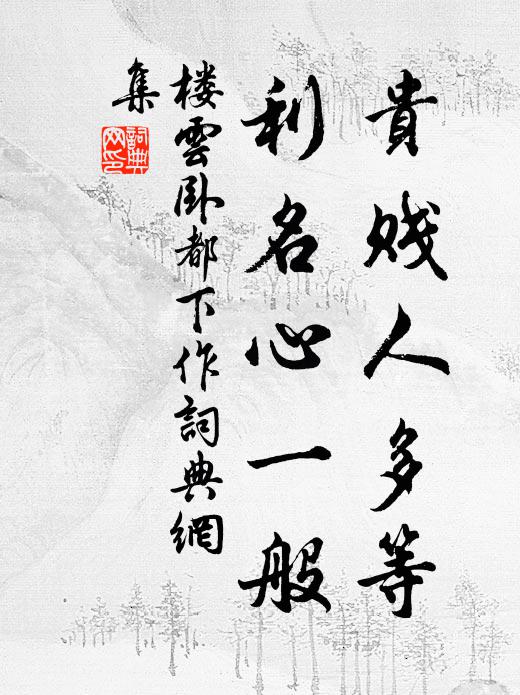 貴賤人多等
利名心一般
楼雲卧都下作詞典網
集
詞典
网印